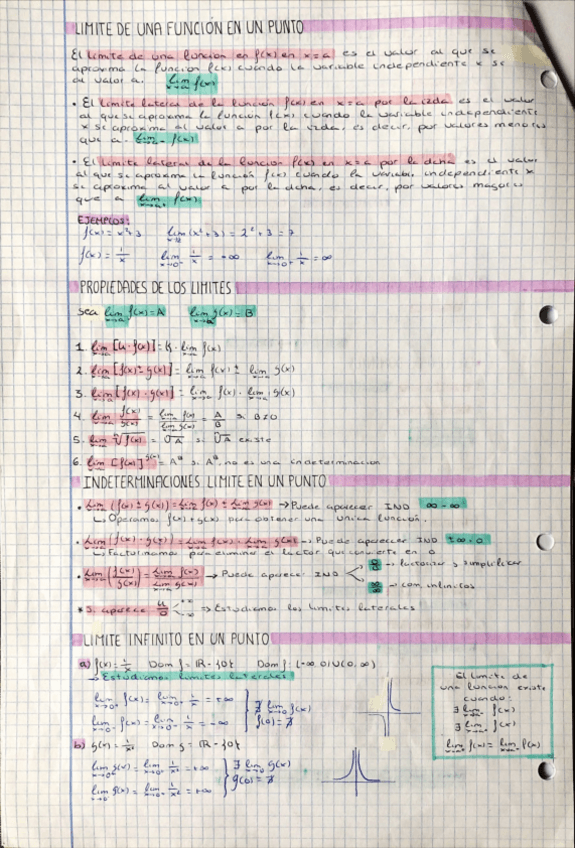 LIMITE DE UNA FUNCIÓN EN UN PUNTO
El límite de una función en f(x) en x=a es el valor al que se
aproxima la función f(x) cuando la variable independiente x se
al valor a. lim x→a f(x)
• El límite lateral de la función f(x) en x=a por la izda es el valor
al que se aproxima la función f(x) cuando la variable independiente
x se aproxima al valor a por la izda, es decir, por valores menores
que a. lim x→a⁻ f(x)
• El límite lateral de la función f(x) en x=a por la dcha es el valor
al que se aproxima la función f(x) cuando la variable independiente x
se aproxima al valor a por la dcha, es decir, por valores mayores
que a lim x→a⁺ f(x)
EJEMPLOS:
f(x)=x²+3 lim x→2 (x²+3) = 2²+3 = 7
f(x)= 1/x lim x→0⁻ 1/x = -∞ lim x→0⁺ 1/x = ∞
PROPIEDADES DE LOS LIMITES
Sea lim x→a f(x)=A lim x→a g(x)=B
1. lim x→a [k·f(x)] = k· lim x→a f(x)
2. lim x→a [f(x) ± g(x)] = lim x→a f(x) ± lim x→a g(x)
3. lim x→a [f(x)·g(x)] = lim x→a f(x) · lim x→a g(x)
4. lim x→a f(x)/g(x) = lim x→a f(x) / lim x→a g(x) = A/B si B≠0
5. lim x→a ⁿ√f(x) = ⁿ√A si ⁿ√A existe
6. lim x→a [f(x)]^g(x) = A^B si A^B no es una indeterminación
INDETERMINACIONES LIMITE EN UN PUNTO
• Lim (f(x) ± g(x)) = Lim f(x) ± Lim g(x) → Puede aparecer IND ∞ - ∞
↳ Operamos f(x) + g(x) para obtener una única función.
• Lim (f(x)·g(x)) = Lim f(x) · Lim g(x) → Puede aparecer IND ±∞·0
↳ Factorizamos para eliminar el factor que convierte en 0
• Lim (f(x)/g(x)) = Lim f(x) / Lim g(x) → Puede aparecer IND 0/0 → factorizar y simplificar
∞/∞ → con infinitos
* Si aparece k/0 → Estudiamos los límites laterales
LIMITE INFINITO EN UN PUNTO
a) f(x)= 1/x Dom f = ℝ - {0} Dom f: (-∞,0)∪(0,∞)
→ Estudiamos límites laterales
lim x→0⁺ f(x) = lim x→0⁺ 1/x = +∞
∄ lim x→0 f(x)
lim x→0⁻ f(x) = lim x→0⁻ 1/x = -∞
f(0) = ∄
El límite de
una función existe
cuando:
∃ lim x→a⁻ f(x)
∃ lim x→a⁺ f(x)
lim x→a⁻ f(x) = lim x→a⁺ f(x)
b) g(x)= 1/x² Dom g = ℝ - {0}
lim x→0⁺ g(x) = lim x→0⁺ 1/x² = +∞
∃ lim x→0 g(x)
g(0) = ∄
lim x→0⁻ g(x) = lim x→0⁻ 1/x² = +∞